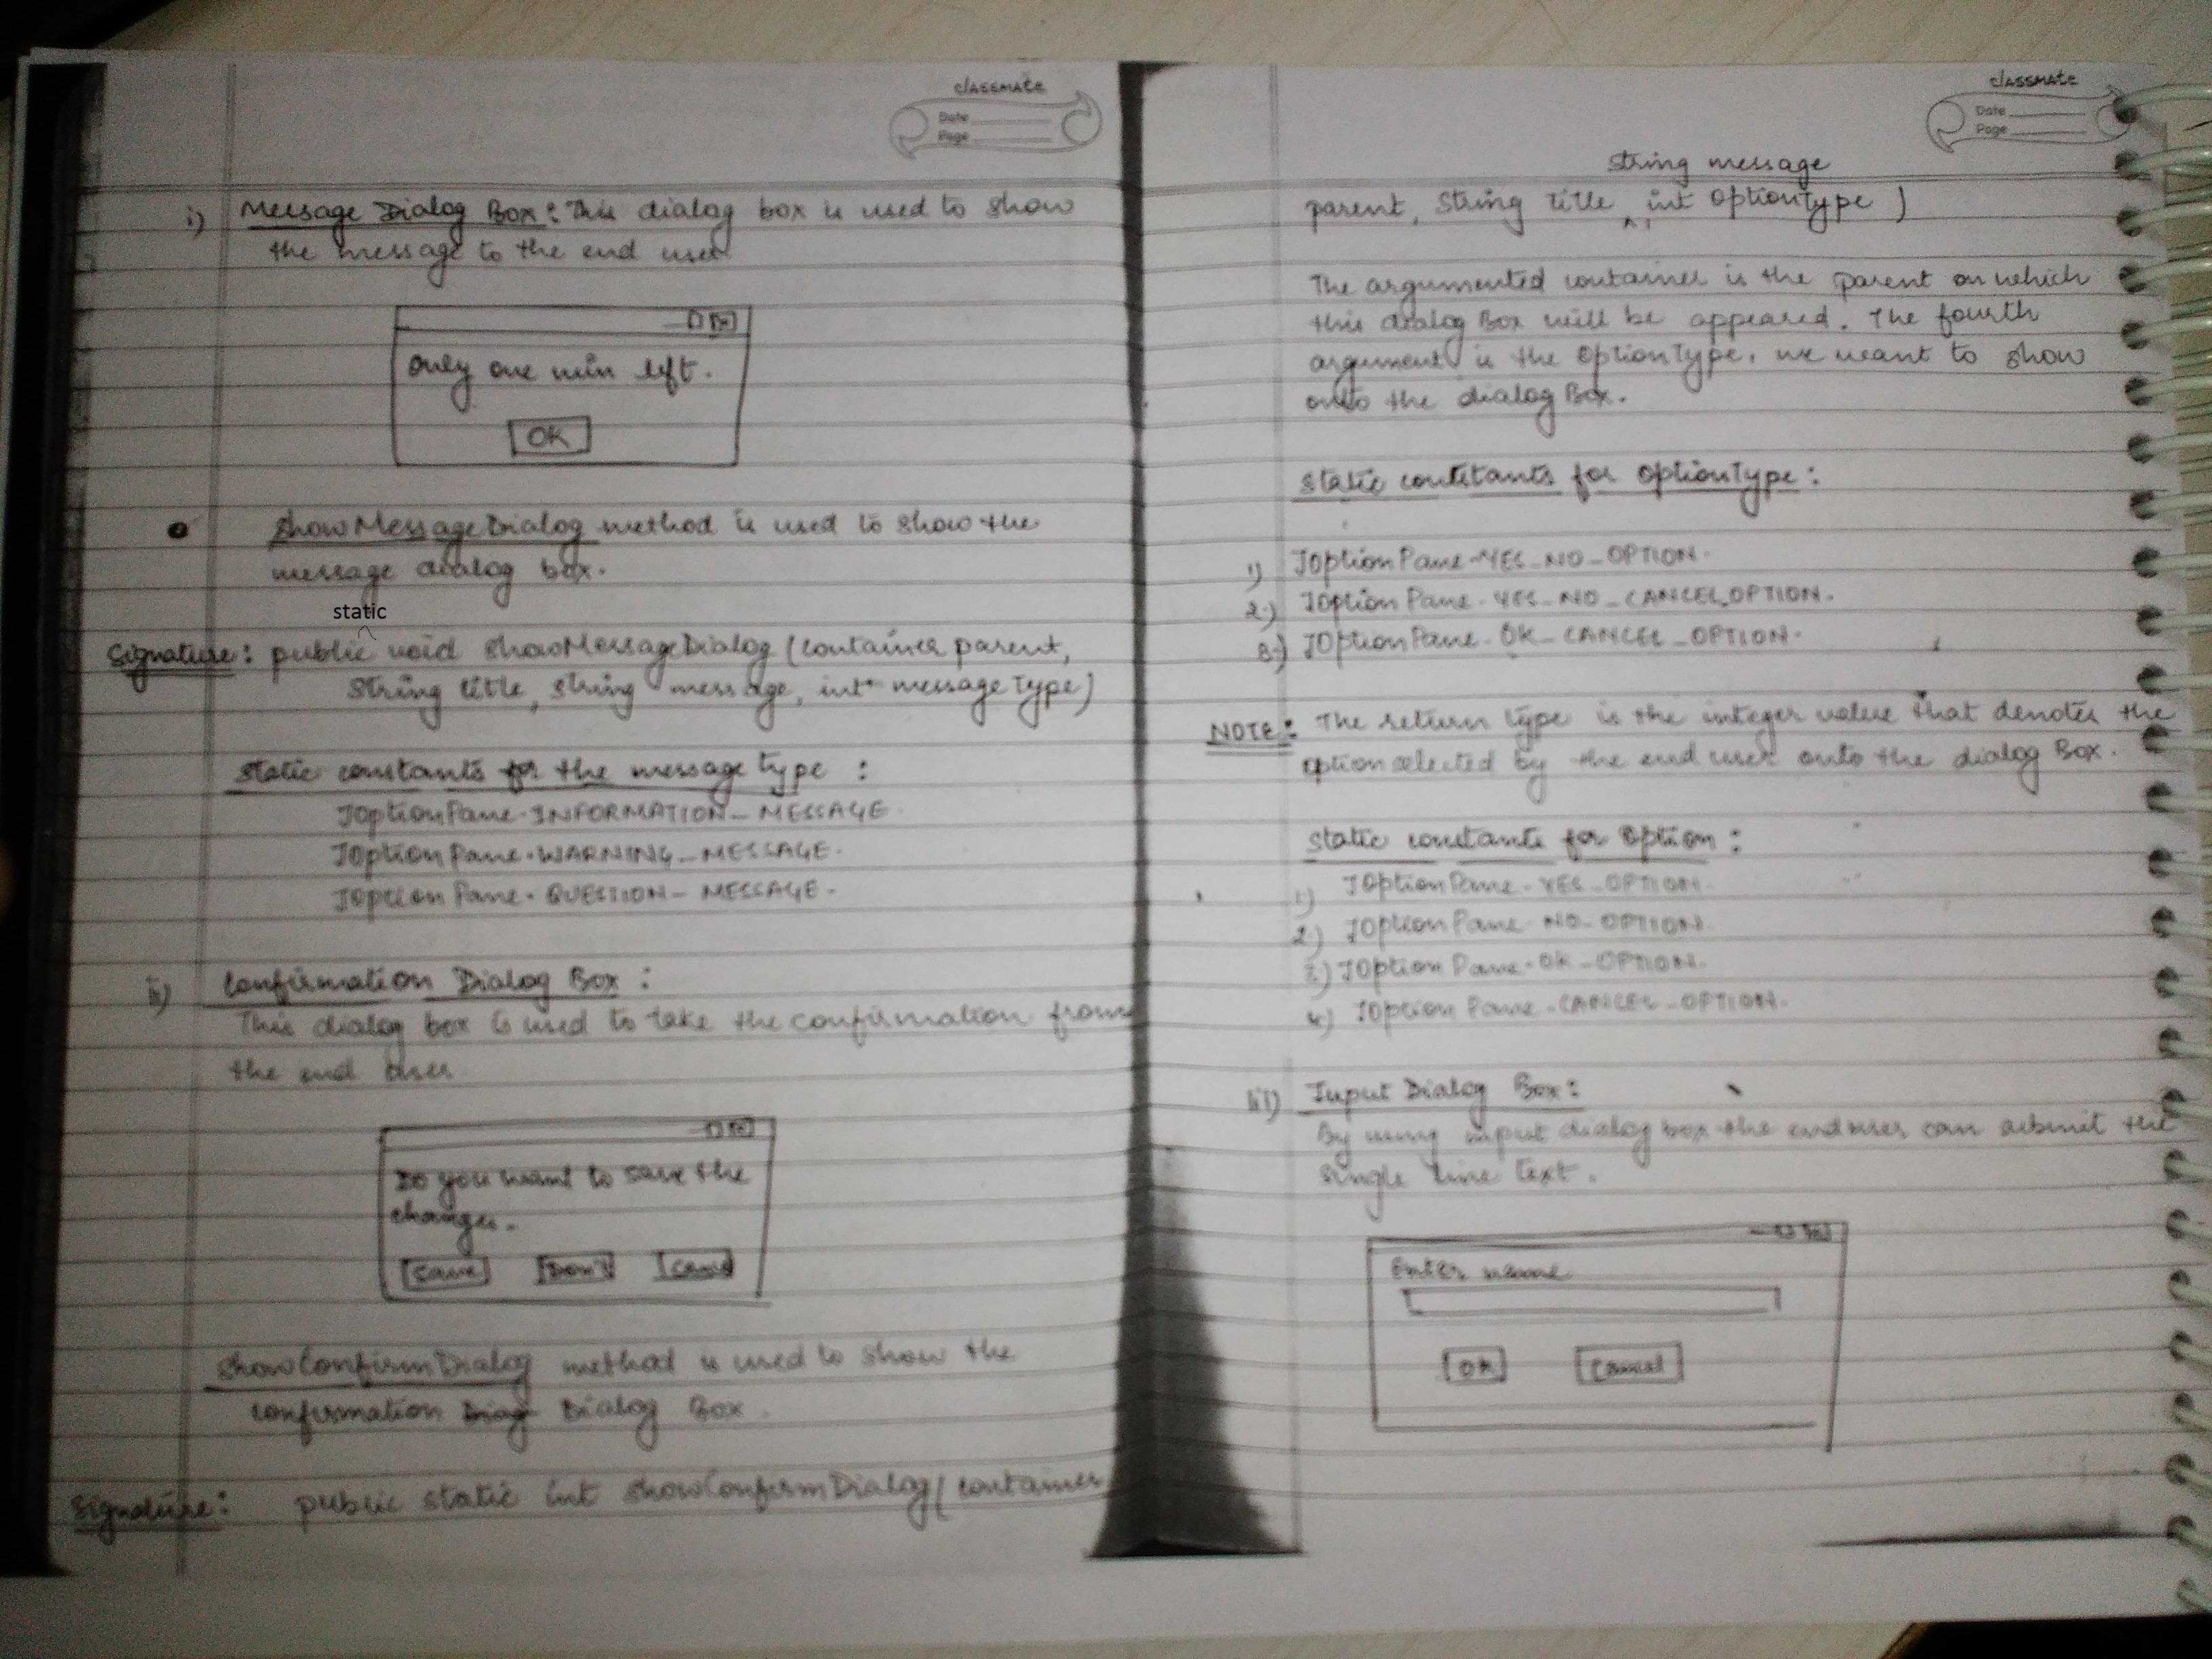 classmate
Date
Page
i) Message Dialog Box: This dialog box is used to show
the message to the end user
only one min left.
OK
showMessageDialog method is used to show the
message dialog box.
static
Signature: public void showMessageDialog (container parent,
String title, string message, int messageType)
static constants for the message type :
JOptionPane.INFORMATION_MESSAGE
JOptionPane.WARNING_MESSAGE.
JOptionPane.QUESTION_MESSAGE.
ii) Confirmation Dialog Box :
This dialog box is used to take the confirmation from
the end user
Do you want to save the
changes.
Save Don't Cancel
showConfirmDialog method is used to show the
confirmation Diag Dialog Box.
Signature: public static int showConfirmDialog(container
classmate
Date
Page
String message
parent, String title, int OptionType )
The argumented container is the parent on which
this dialog Box will be appeared. The fourth
argument is the OptionType, we want to show
onto the dialog Box.
static constants for OptionType :
1) JOptionPane-YES_NO_OPTION.
2.) JOptionPane.YES_NO_CANCEL_OPTION.
3.) JOptionPane.OK_CANCEL_OPTION.
NOTE: The return type is the integer value that denotes the
option selected by the end user onto the dialog Box.
static constants for Option :
1) JOptionPane.YES_OPTION.
2.) JOptionPane.NO_OPTION.
3.) JOptionPane.OK_OPTION.
4.) JOptionPane.CANCEL_OPTION.
iii) Input Dialog Box:
By using input dialog box the end user can submit the
single line text.
Enter name
OK Cancel